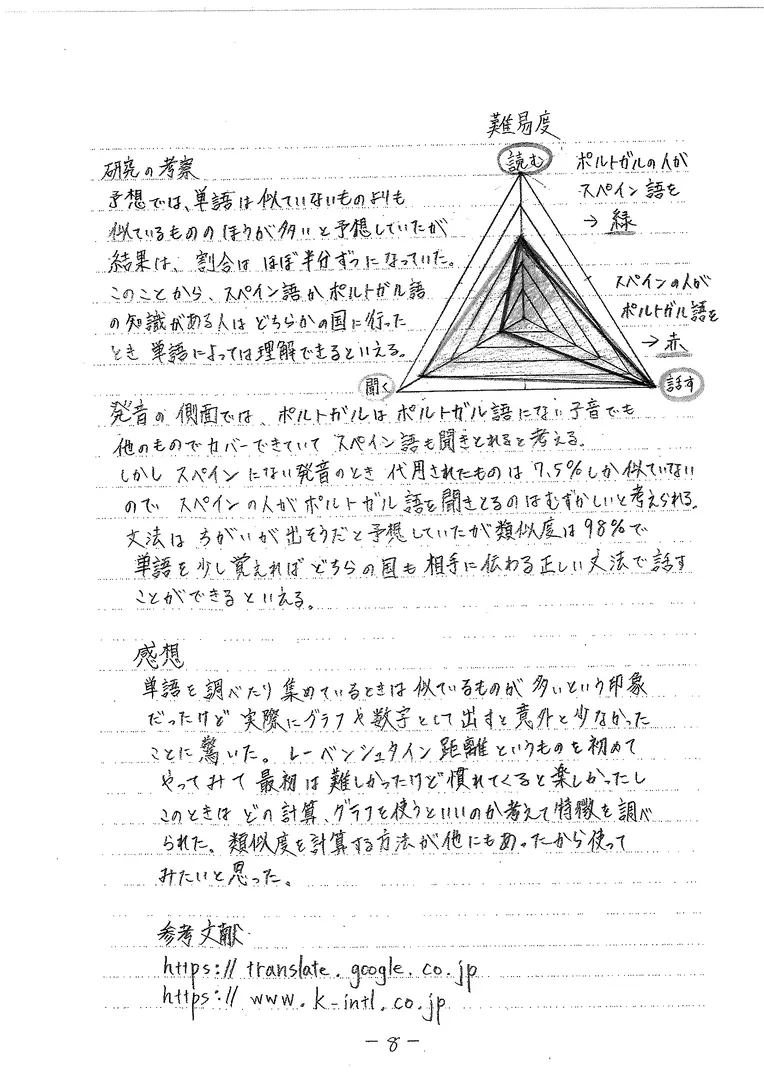 難易度
研究の考察
読む
ポルトガルの人が
スペイン語を
→ 緑
予想では、単語は似ていないものよりも
似ているもののほうが多いと予想していたが
結果は、割合はほぼ半分ずつになっていた。
このことから、スペイン語かポルトガル語
の知識がある人はどちらかの国に行った
とき単語によっては理解できるといえる。
スペインの人が
ポルトガル語を
→ 赤
聞く
話す
発音の側面では、ポルトガルはポルトガル語にない子音でも
他のものでカバーできていてスペイン語も聞きとれると考える。
しかしスペインにない発音のとき代用されたものは7.5%しか似ていない
のでスペインの人がポルトガル語を聞きとるのはむずかしいと考えられる。
文法はちがいが出そうだと予想していたが類似度は98%で
単語を少し覚えればどちらの国も相手に伝わる正しい文法で話す
ことができるといえる。
感想
単語を調べたり集めているときは似ているものが多いという印象
だったけど実際にグラフや数字として出すと意外と少なかった
ことに驚いた。レーベンシュタイン距離というものを初めて
やってみて最初は難しかったけど慣れてくると楽しかったし
このときはどの計算、グラフを使うといいのか考えて特徴を調べ
られた。類似度を計算する方法が他にもあったから使って
みたいと思った。
参考文献
https://translate.google.co.jp
https://www.k-intl.co.jp
- 8 -